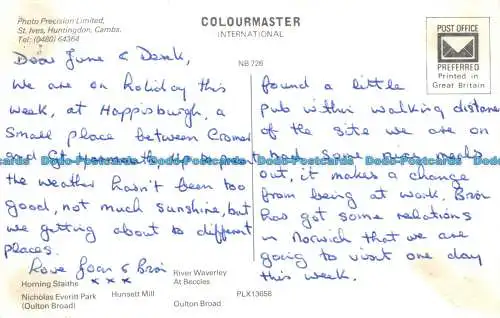 Photo Precision Limited,
St. Ives, Huntingdon, Cambs.
Tel: (0480) 64364
COLOURMASTER
INTERNATIONAL
NB 726
POST OFFICE
PREFERRED
Printed in
Great Britain
Dear June & Derek,
We are on holiday this
week, at Happisburgh, a
small place between Cromer
and Gt Yarmouth, up to present
the weather hasn't been too
good, not much sunshine, but
we getting about to different
places.
Love Joan & Bri
x x x
found a little
pub within walking distance
of the site we are on
had some nice meals
out, it makes a change
from being at work. Bri
has got some relations
in Norwich that we are
going to visit one day
this week.
Horning Staithe
River Waverley
At Beccles
Nicholas Everitt Park
(Oulton Broad)
Hunsett Mill
Oulton Broad
PLX13658
Dodo-Postcards Dodo-Postcards Dodo-Postcards Dodo-Postcards Dodo-Postcards